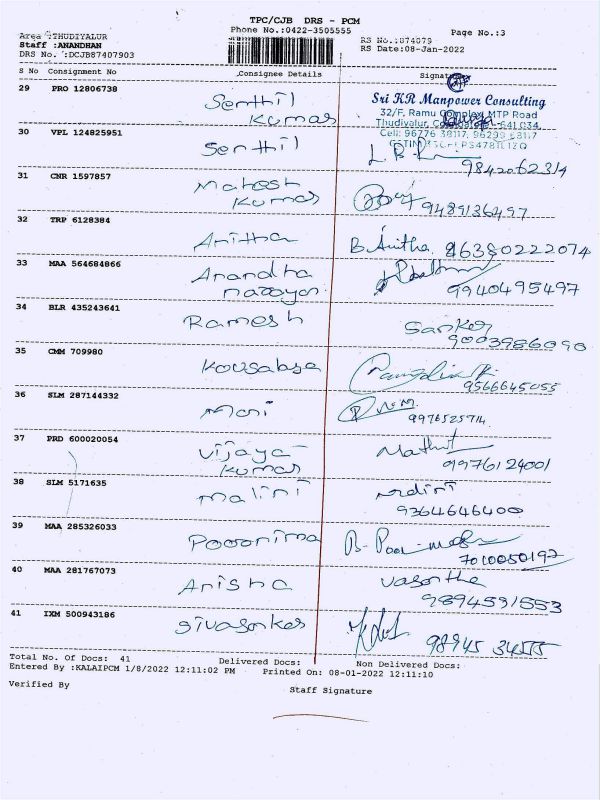 TPC/CJB DRS - PCM
Phone No.:0422-3505555
Page No.:3
Area :THUDIYALUR
Staff :ANANDHAN
DRS No. :DCJB87407903
RS No.:874079
RS Date:08-Jan-2022
S No Consignment No Consignee Details Signature
29 PRO 12806738 Senthil Kumar
Sri KR Manpower Consulting
32/F, Ramu Complex, MTP Road
Thudiyalur, Coimbatore - 641 034
Cell: 96776 38117, 96299 68117
30 VPL 124825951 Senthil
9842062314
31 CNR 1597857 Mahesh Kumar
9489136497
32 TRP 6128384 Anitha B. Anitha 86380222074
33 MAA 564684866 Anandha narayan
9940495497
34 BLR 435243641 Ramesh Sanker
9003986090
35 CMM 709980 Kousalya
9566645055
36 SLM 287144332 Mani
9976525714
37 PRD 600020054 Vijaya Kumar
9976124001
38 SLM 5171635 Malini
9364646400
39 MAA 285326033 Poornima
7010050192
40 MAA 281767073 Anisha Vasantha
9894591553
41 IXM 500943186 Sivasanker
98945 34555
Total No. Of Docs: 41 Delivered Docs: Non Delivered Docs:
Entered By :KALAIPCM 1/8/2022 12:11:02 PM Printed On: 08-01-2022 12:11:10
Verified By
Staff Signature